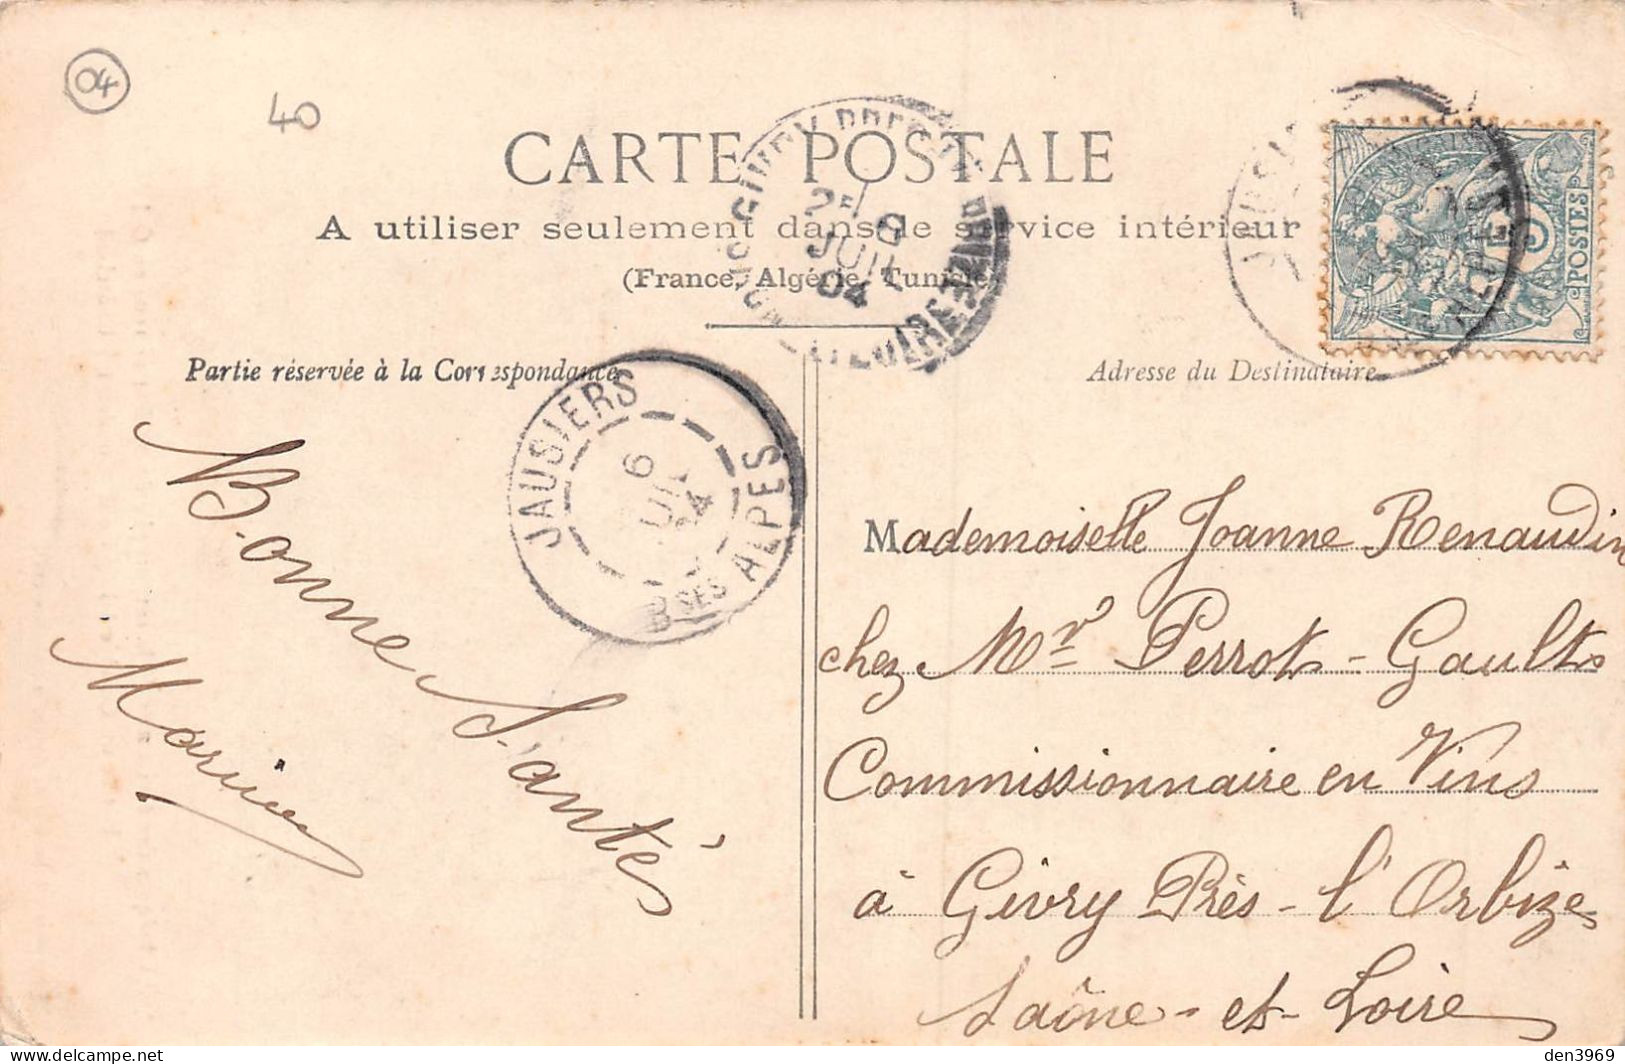 04
40
CARTE POSTALE
A utiliser seulement dans le service intérieur
(France, Algérie, Tunisie)
Partie réservée à la Correspondance
Adresse du Destinataire
JAUSIERS
6
Bses ALPES
8
JUIL
04
5
POSTES
Bonne Santés
Marius
Mademoiselle Joanne Renaudin
chez Mr Perrot-Gault
Commissionnaire en Vins
à Givry Près-l'Orbize
Saône-et-Loire
den3969